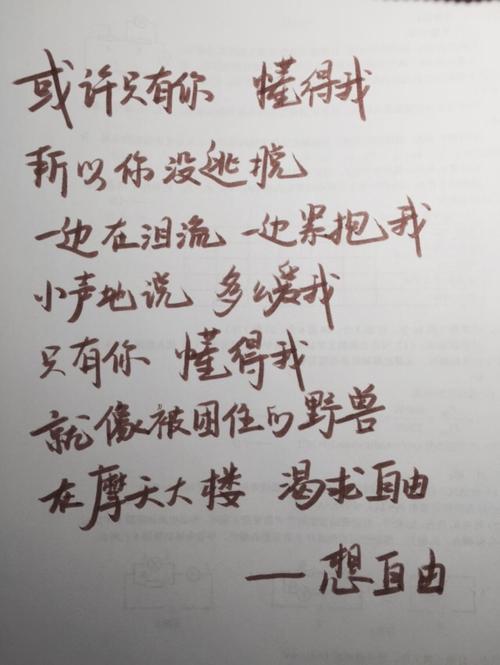 或许只有你 懂得我
所以你没逃脱
一边在泪流 一边紧抱我
小声地说 多么爱我
只有你 懂得我
就像被困住的野兽
在摩天大楼 渴求自由
——想自由